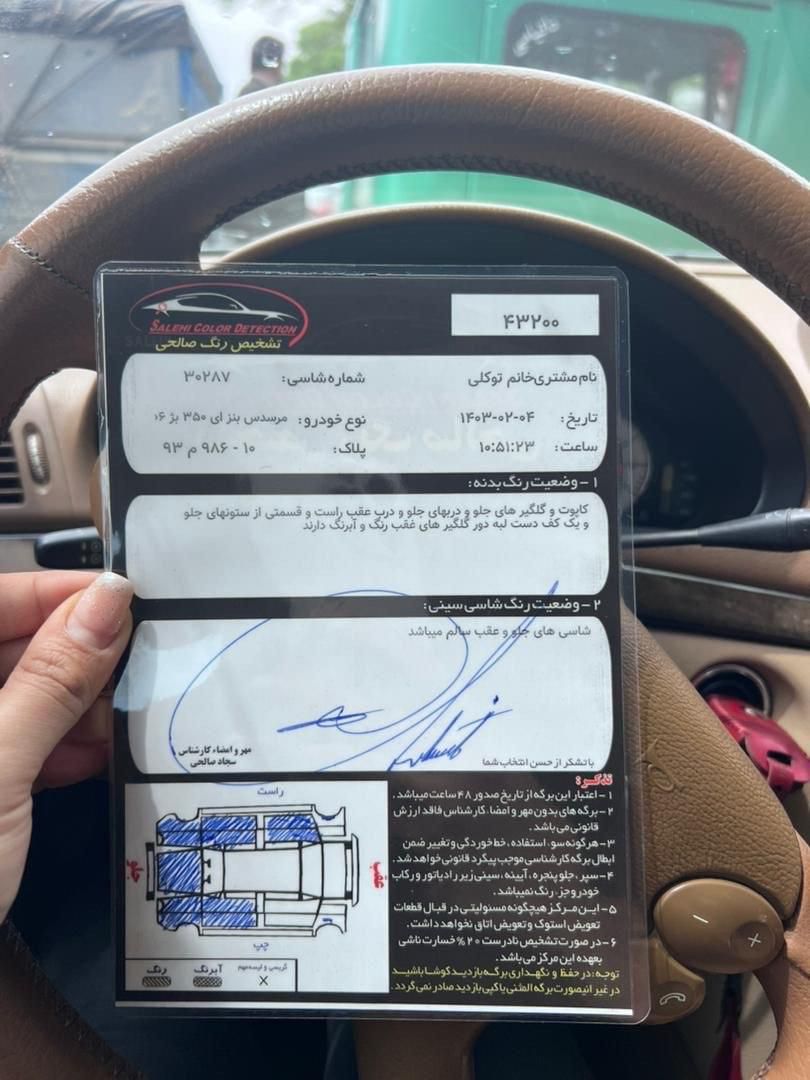 SALEHI COLOR DETECTION
تشخیص رنگ صالحی
۴۳۲۰۰
نام مشتری خانم توکلی
شماره شاسی: ۳۰۲۸۷
تاریخ: ۱۴۰۳-۰۲-۰۴
نوع خودرو: مرسدس بنز ای ۳۵۰ بژ ۰۶
ساعت: ۱۰:۵۱:۲۳
پلاک: ۱۰ - ۹۸۶ م ۹۳
۱ - وضعیت رنگ بدنه:
کاپوت و گلگیر های جلو و دربهای جلو و درب عقب راست و قسمتی از ستونهای جلو
و یک کف دست لبه دور گلگیر های عقب رنگ و آبرنگ دارند
۲ - وضعیت رنگ شاسی سینی:
شاسی های جلو و عقب سالم میباشد
مهر و امضاء کارشناس
سجاد صالحی
با تشکر از حسن انتخاب شما
تذکر:
۱ - اعتبار این برگه از تاریخ صدور ۴۸ ساعت میباشد.
۲ - برگه های بدون مهر و امضاء کارشناس فاقد ارزش
قانونی می باشد.
۳ - هرگونه سوء استفاده، خط خوردگی و تغییر ضمن
ابطال برگه کارشناسی موجب پیگرد قانونی خواهد شد.
۴ - سپر، جلو پنجره، آیینه، سینی زیر رادیاتور و رکاب
خودرو جزء رنگ نمیباشد.
۵ - این مرکز هیچگونه مسئولیتی در قبال قطعات
تعویض استوک و تعویض اتاق نخواهد داشت.
۶ - در صورت تشخیص نادرست ۲۰% خسارت ناشی
بعهده این مرکز می باشد.
توجه: در حفظ و نگهداری برگه بازدید کوشا باشید
در غیر اینصورت برگه المثنی یا کپی بازدید صادر نمی گردد.
راست
جلو
عقب
چپ
رنگ
آبرنگ
گریسی و لیسه مهم
X